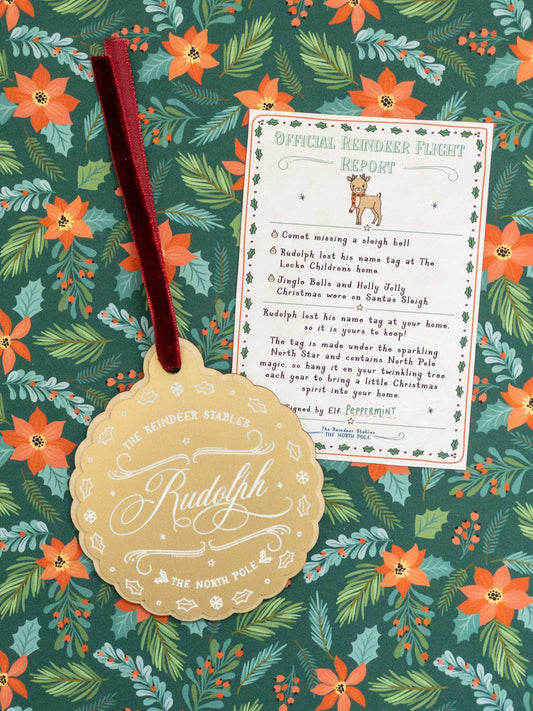 OFFICIAL REINDEER FLIGHT
REPORT
Comet missing a sleigh bell
Rudolph lost his name tag at The
Locke Childrens home.
Jingle Bells and Holly Jolly
Christmas were on Santas Sleigh
Rudolph lost his name tag at your home,
so it is yours to keep!
The tag is made under the sparkling
North Star and contains North Pole
magic, so hang it on your twinkling tree
each year to bring a little Christmas
spirit into your home.
Signed by Elf: PEPPERMINT
The Reindeer Stables
THE NORTH POLE
THE REINDEER STABLES
Rudolph
THE NORTH POLE